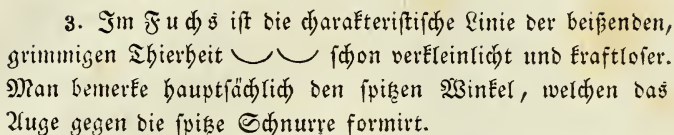 3. Im Fuchs ist die charakteristische Linie der beißenden,
grimmigen Thierheit ‿‿ schon verkleinlicht und kraftloser.
Man bemerke hauptsächlich den spitzen Winkel, welchen das
Auge gegen die spitze Schnurre formirt.